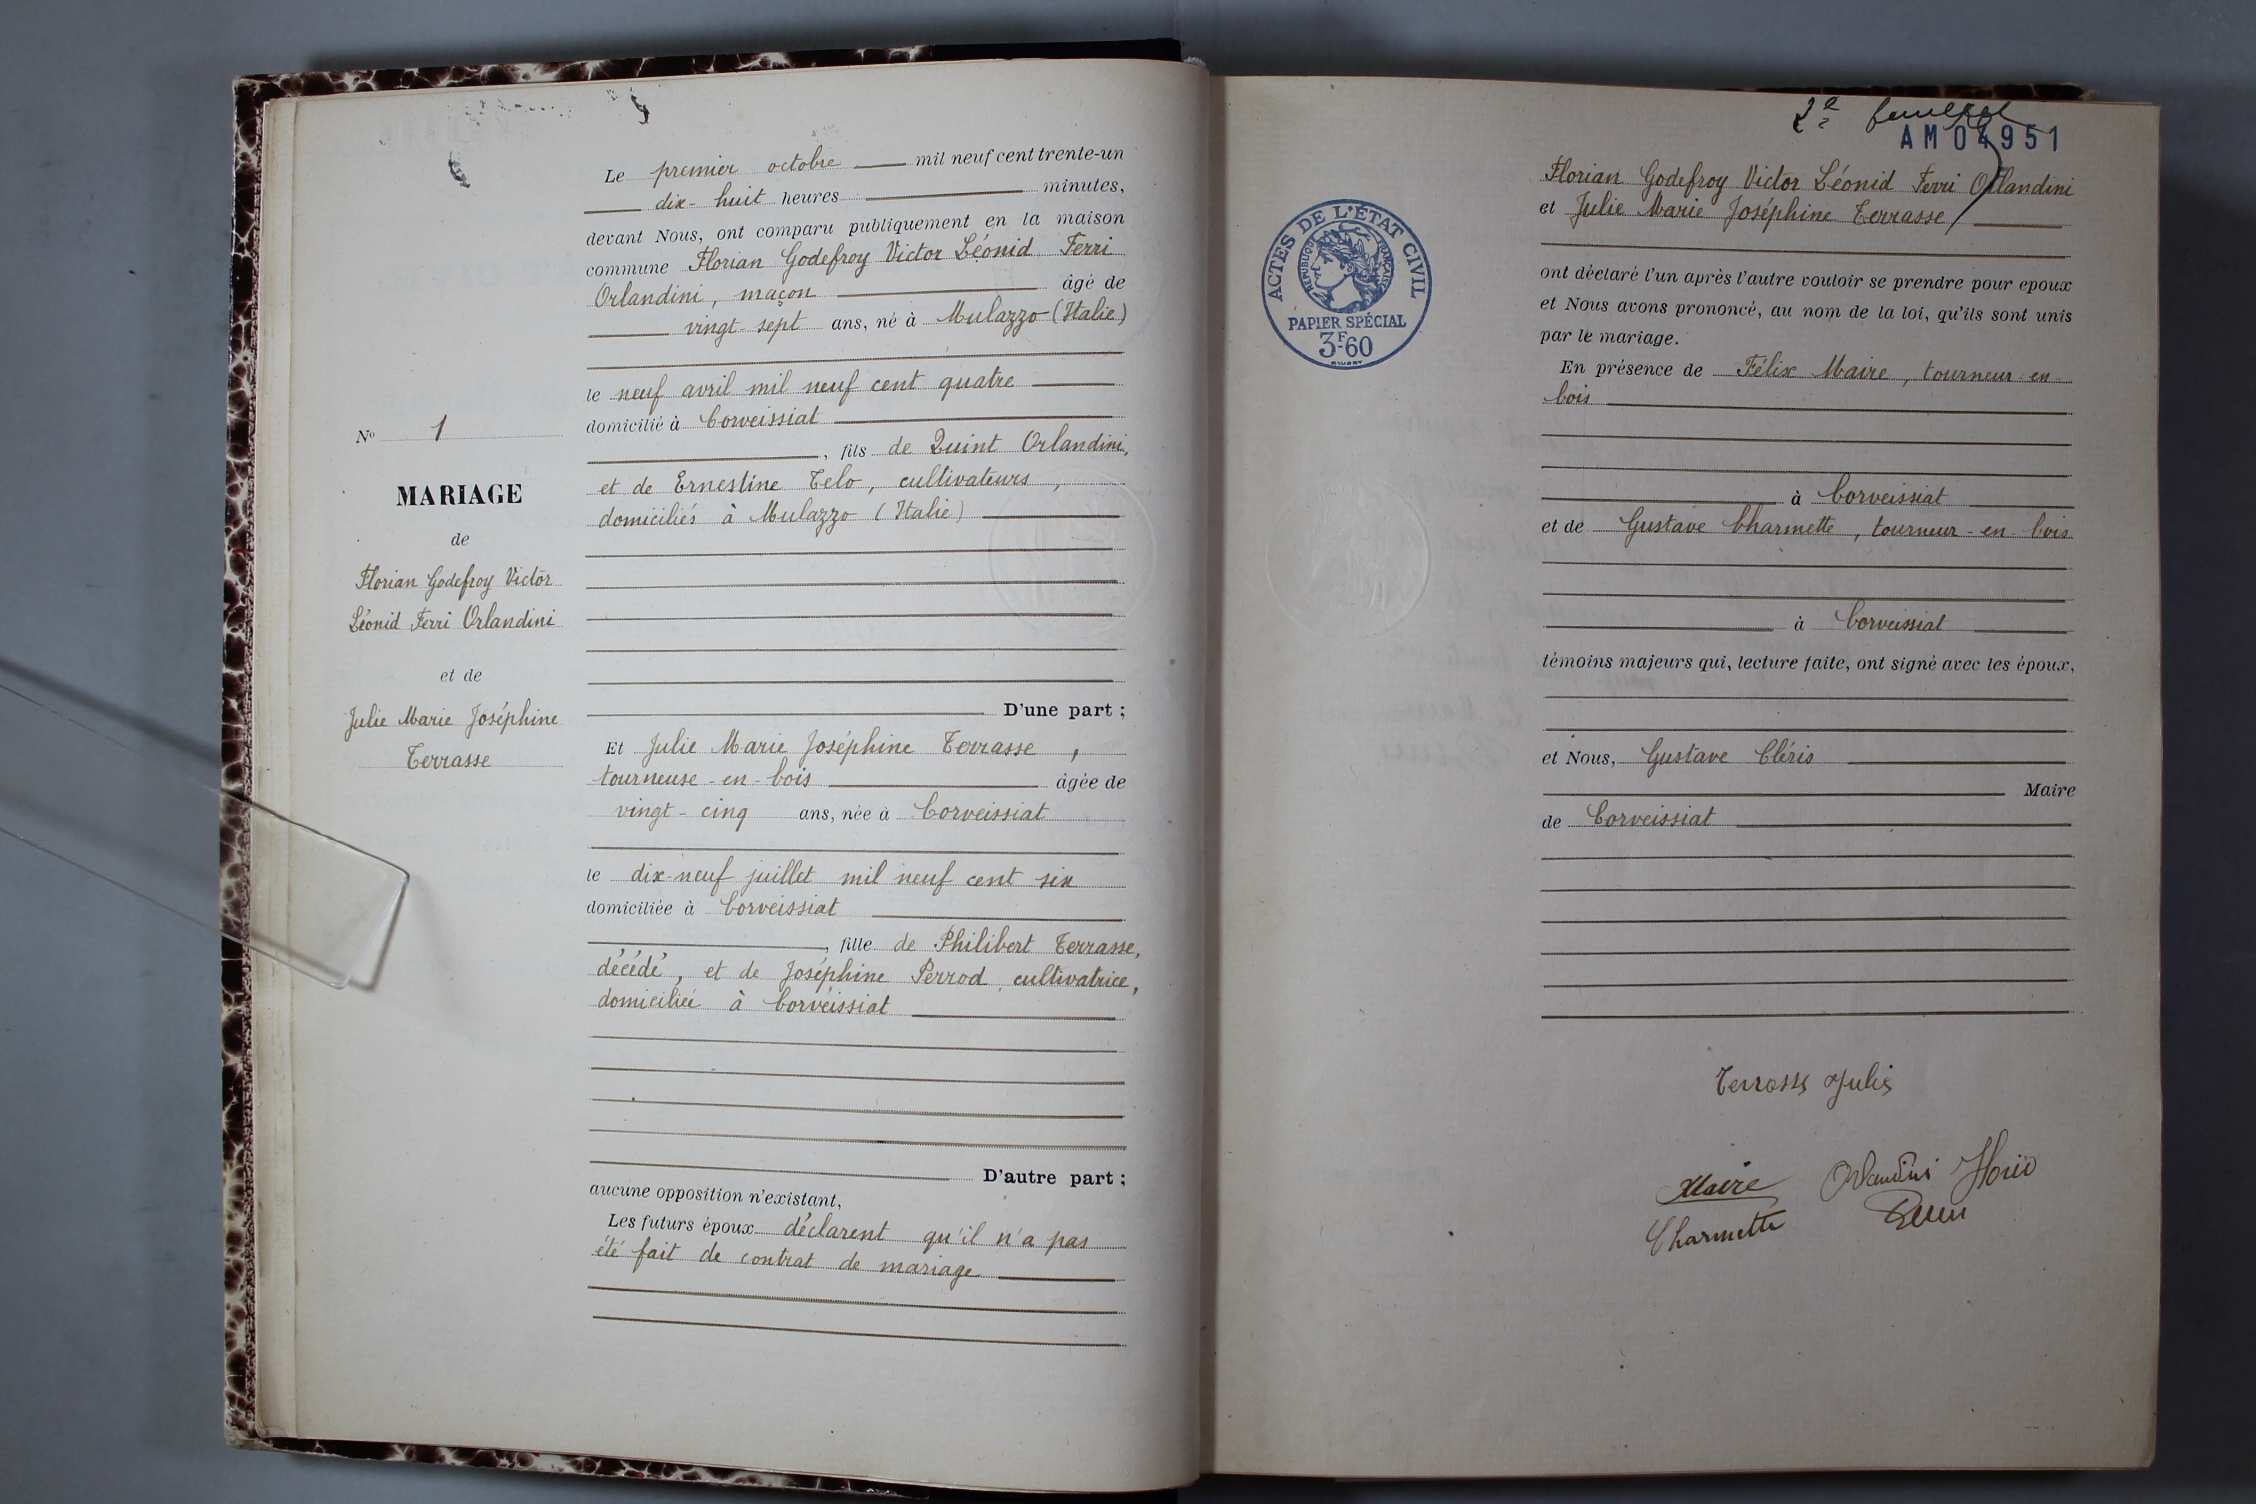 Le premier octobre mil neuf cent trente-un
dix-huit heures minutes,
devant Nous, ont comparu publiquement en la maison
commune Florian Godefroy Victor Léonid Ferri
Orlandini, maçon âgé de
vingt-sept ans, né à Mulazzo (Italie)
le neuf avril mil neuf cent quatre
domicilié à Corveissiat
, fils de Quint Orlandini,
et de Ernestine Telo, cultivateurs,
domiciliés à Mulazzo (Italie)
D'une part ;
Et Julie Marie Joséphine Terrasse,
tourneuse-en-bois âgée de
vingt-cinq ans, née à Corveissiat
le dix-neuf juillet mil neuf cent six
domiciliée à Corveissiat
, fille de Philibert Terrasse,
décédé, et de Joséphine Perrod, cultivatrice,
domiciliée à Corveissiat
D'autre part ;
aucune opposition n'existant,
Les futurs époux déclarent qu'il n'a pas
été fait de contrat de mariage
No 1
MARIAGE
de
Florian Godefroy Victor
Léonid Ferri Orlandini
et de
Julie Marie Joséphine
Terrasse
2e feuillet
AM 04951
Florian Godefroy Victor Léonid Ferri Orlandini
et Julie Marie Joséphine Terrasse
ont déclaré l'un après l'autre vouloir se prendre pour epoux
et Nous avons prononcé, au nom de la loi, qu'ils sont unis
par le mariage.
En présence de Félix Maire, tourneur-en-
bois
à Corveissiat
et de Gustave Charmette, tourneur-en-bois
à Corveissiat
témoins majeurs qui, lecture faite, ont signé avec les époux,
et Nous, Gustave Cléris
Maire
de Corveissiat
ACTES DE L'ÉTAT CIVIL
RÉPUBLIQUE FRANÇAISE
PAPIER SPÉCIAL
3F60
Terrasse Julie
Maire Orlandini
Charmette